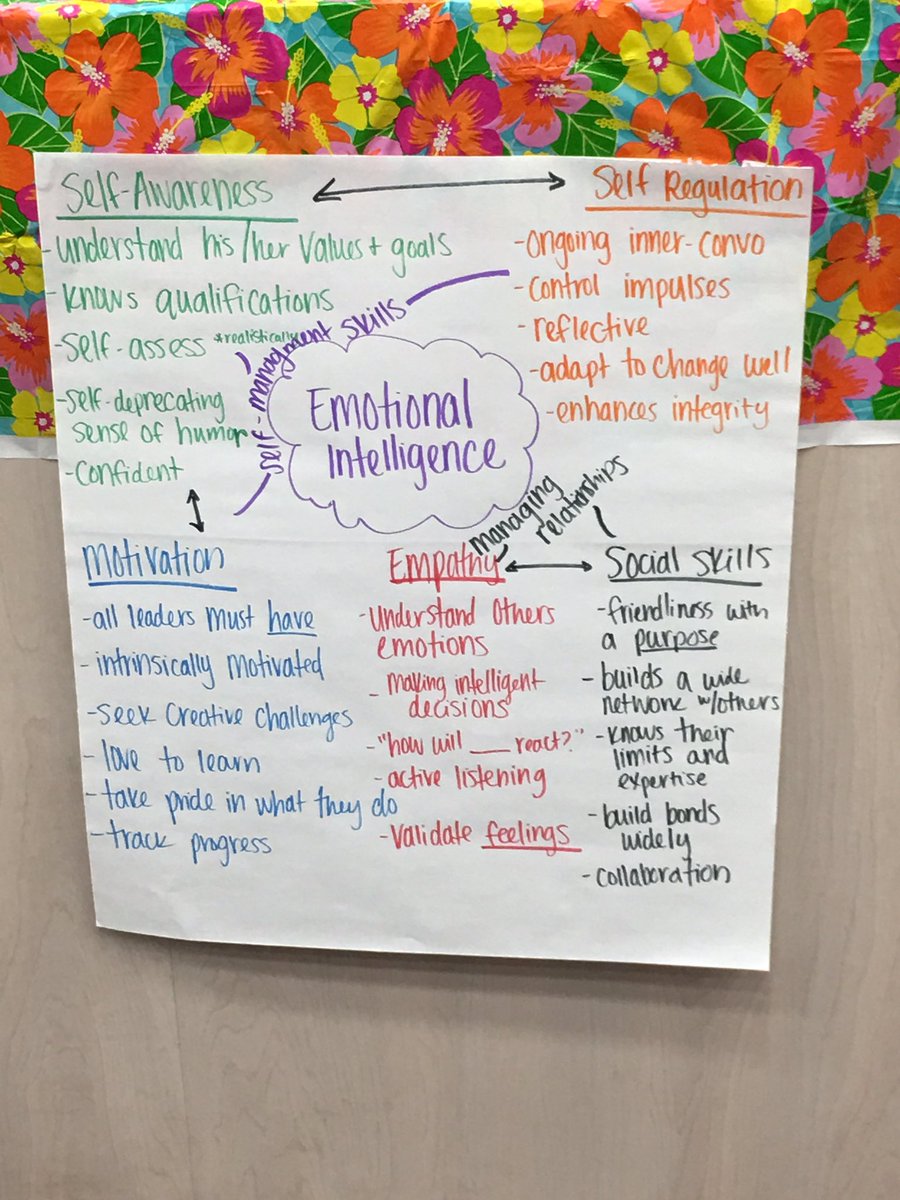 Self-Awareness
-understand his/her values + goals
-knows qualifications
-self-assess *realistically
-self-deprecating
sense of humor
-confident
Self Regulation
-ongoing inner-convo
-control impulses
-reflective
-adapt to change well
-enhances integrity
self-managment skills
Emotional
Intelligence
managing
relationships
Motivation
-all leaders must have
-intrinsically motivated
-seek creative challenges
-love to learn
-take pride in what they do
-track progress
Empathy
-understand others
emotions
-making intelligent
decisions
-"how will ___ react?"
-active listening
-validate feelings
Social Skills
-friendliness with
a purpose
-builds a wide
network w/others
-knows their
limits and
expertise
-build bonds
widely
-collaboration